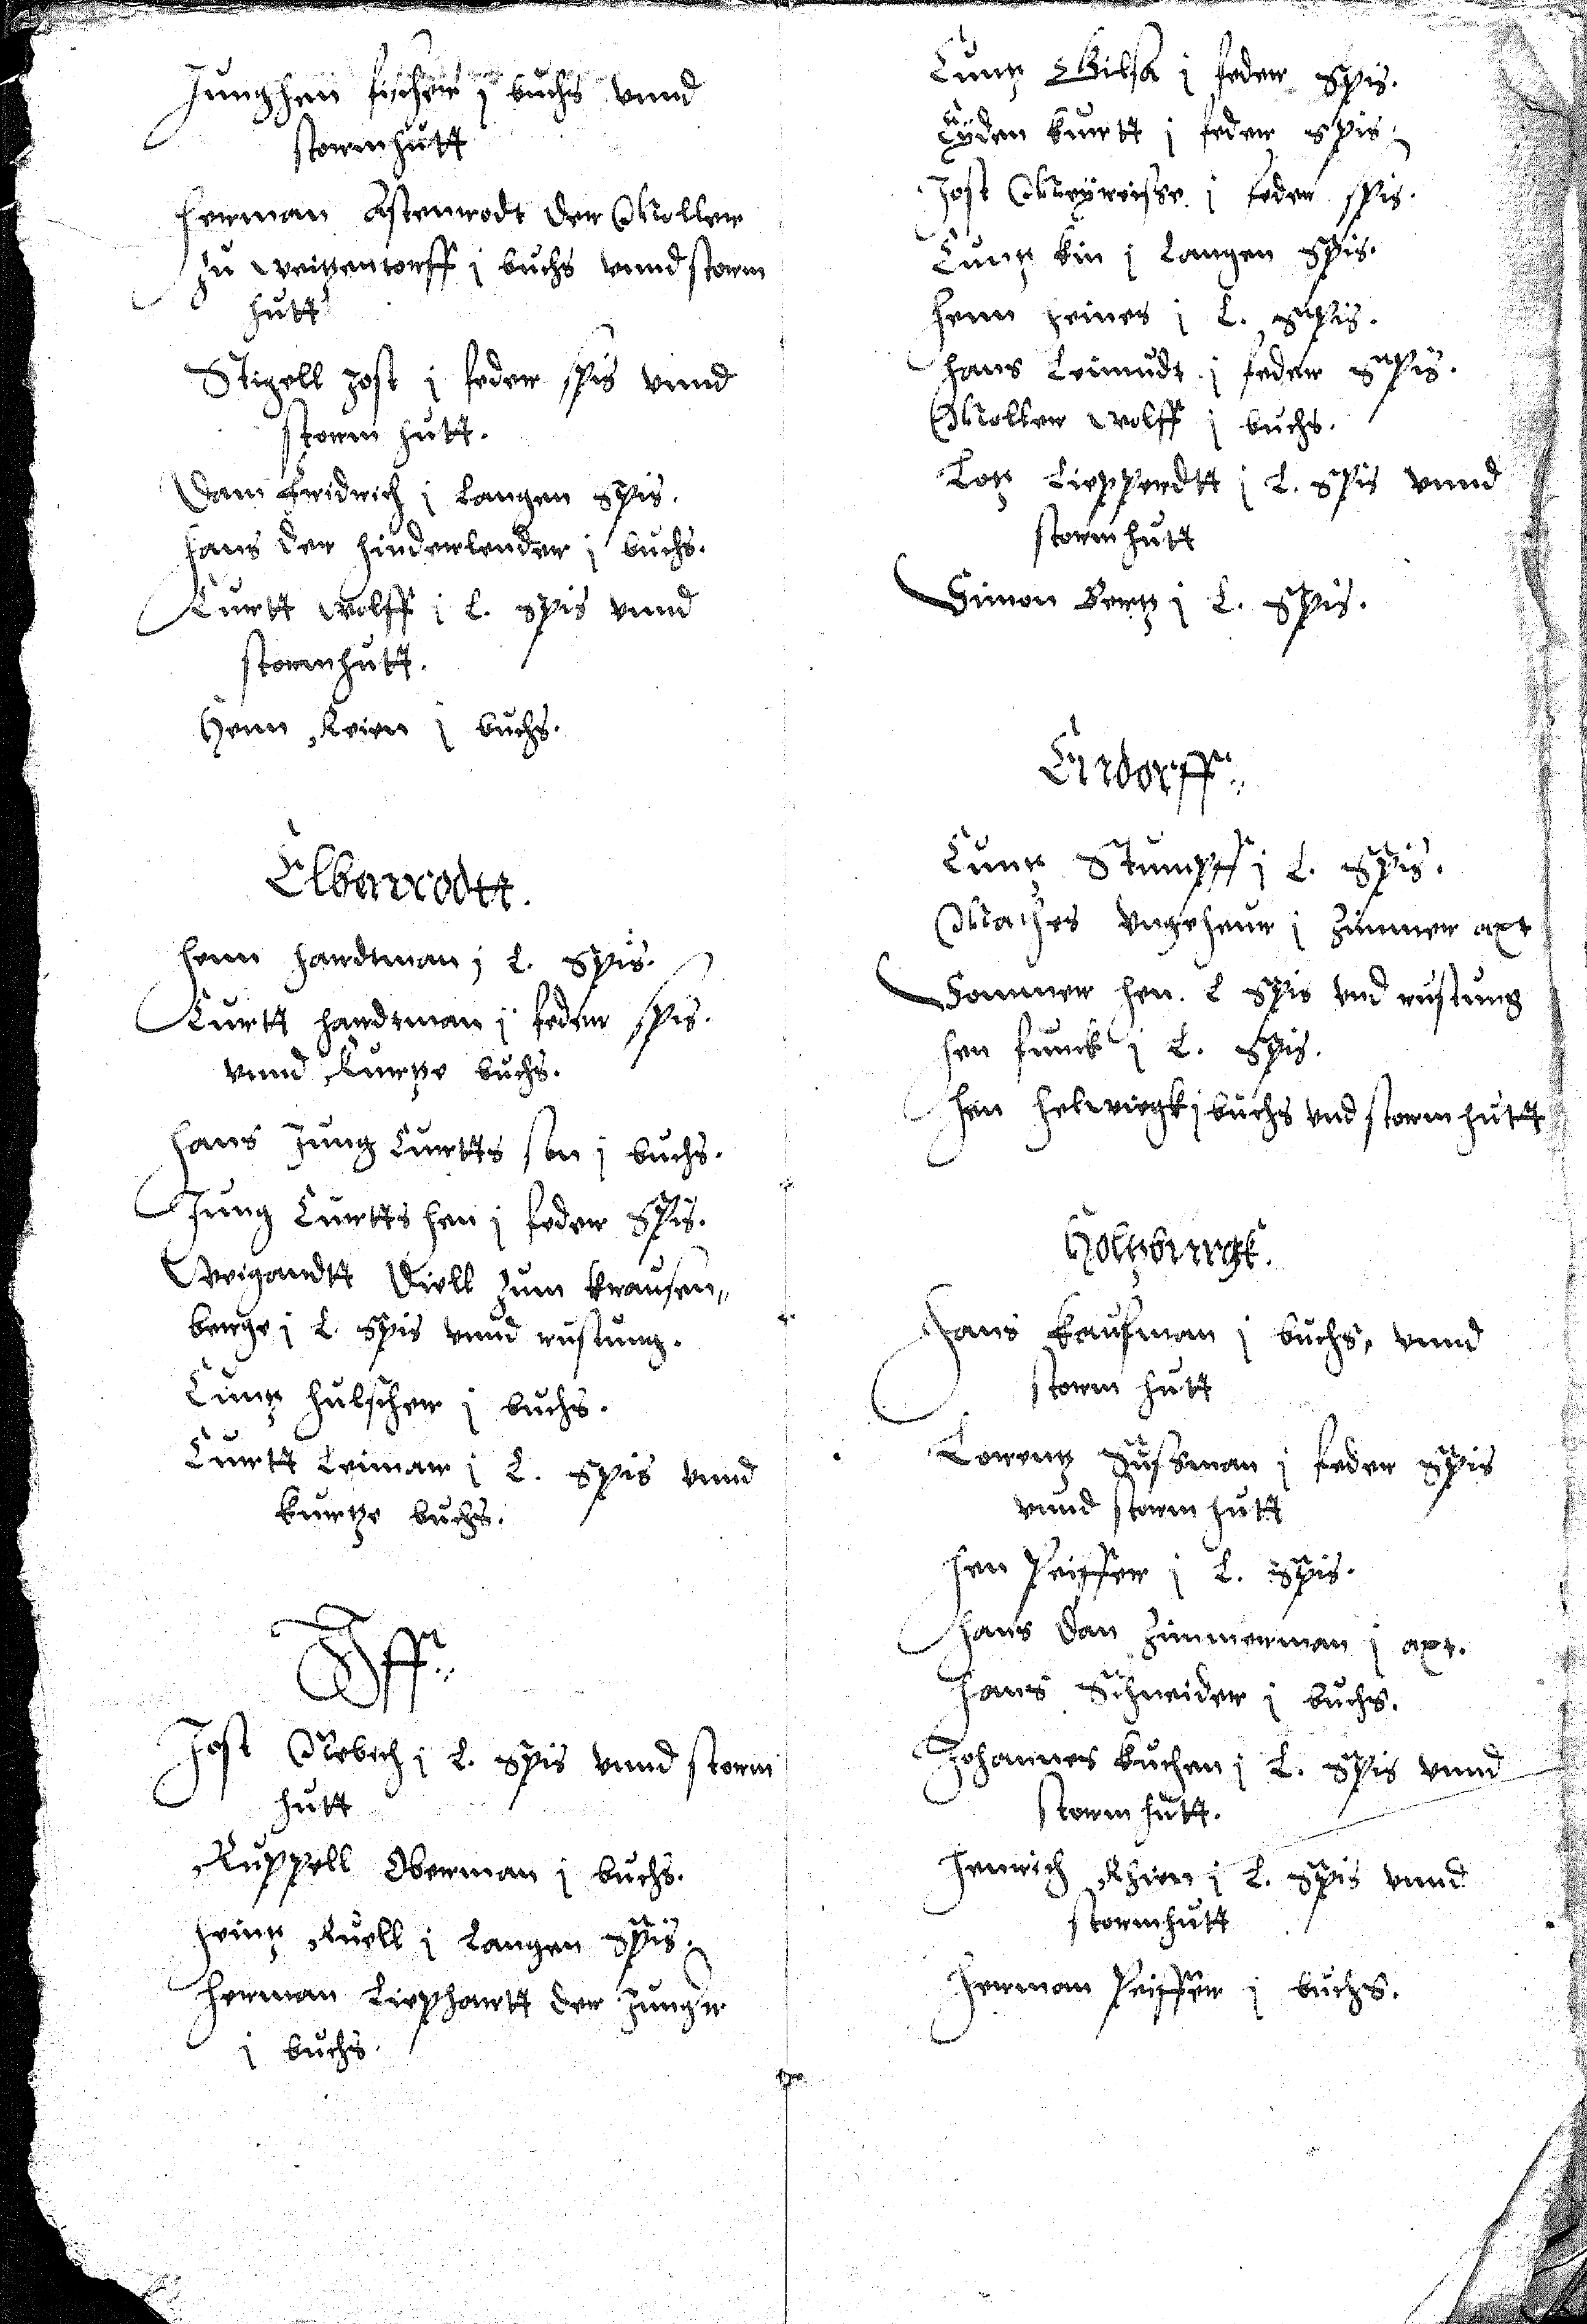 Junghen fischer j buchs vnnd
stormhutt
Herman Astenrodt der Moller
zu weitzentorff j buchs vnnd storm
hutt
Stigell Jost j feder spis vnnd
storm hutt.
Dam Fridrich j langen spis.
Hans der hinderlender j buchs.
Curtt wolff j l. spis vnnd
stormhutt.
Henn Reien j buchs.
Elbenrodtt.
Henn hardtman j l. spis.
Curtt hardtman j feder spis.
vnnd Kurtze buchs.
Hans Jung Curtts son j buchs.
Jung Curtts hen j feder spis.
Weigandtt Diell zum krausen„
berge j l. spis vnnd rustung.
Cuntz hulscher j buchs.
Curtt Leimar j l. spis vnnd
kurtze buchs.
Iff„
Jost Rebich j l. spis vnnd storm
hutt
Ruppell Oberman j buchs.
Heintz Ruell j langen spis.
Herman Liephartt der Junger
j buchs.
Cuntz Gilsa j feder spis.
Eyden kurtt j feder spis.
Jost Meyreisse j feder spis.
Cuntz kin j langen spis.
Henn heines j l. spis.
Hans Leimudt j feder spis.
Moller wolff j buchs.
Lotz Liepperdtt j l. spis vnnd
stormhutt
Simon Gertz j l. spis.
Eirdorff„
Cuntz Stumpff j l. spis.
Mathes vngeheur j zimmer axt
Sommer hen. l spis vnd rustung
Hen funck j l. spis.
Hen helwiegk j buchs vnd stormhutt
Holtzburgk.
Hans Kaufman j buchs, vnnd
storm hutt
Lorentz Sussman j feder spis
vnnd stormhutt
Hen Peiffer j l. spis.
Hans Dan Zimmerman j axt.
Hans Schneider j buchs.
Johannes kuchen j l. spis vnnd
stormhutt.
Henrich Rhien j l. spis vnnd
stormhutt
Herman Peiffer j buchs.